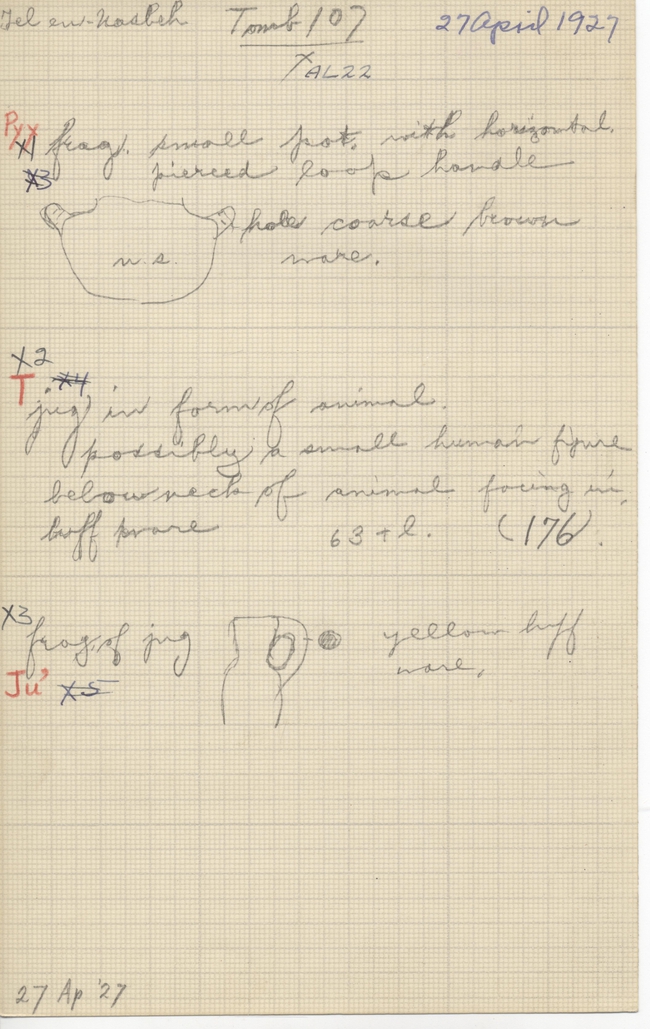 Tel en-Nasbeh Tomb 107 27 April 1927
x AL22
Pyx
x1 frag. small pot. with horizontal
x3 pierced loop handle
hole coarse brown
n.s. ware.
x2
T #4
jug in form of animal.
possibly a small human figure
below neck of animal facing in,
buff ware 63 + l. (176).
x3 frag. of jug yellow buff
ware,
Ju' x5
27 Ap '27